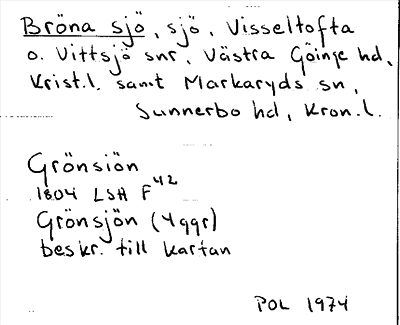 Bröna sjö, sjö, Visseltofta
o. Vittsjö snr, Västra Göinge hd,
Krist.l. samt Markaryds sn,
Sunnerbo hd, Kron.l.
Grönsiön
1804 LSH F 42
Grönsjön (4ggr)
beskr. till kartan
POL 1974